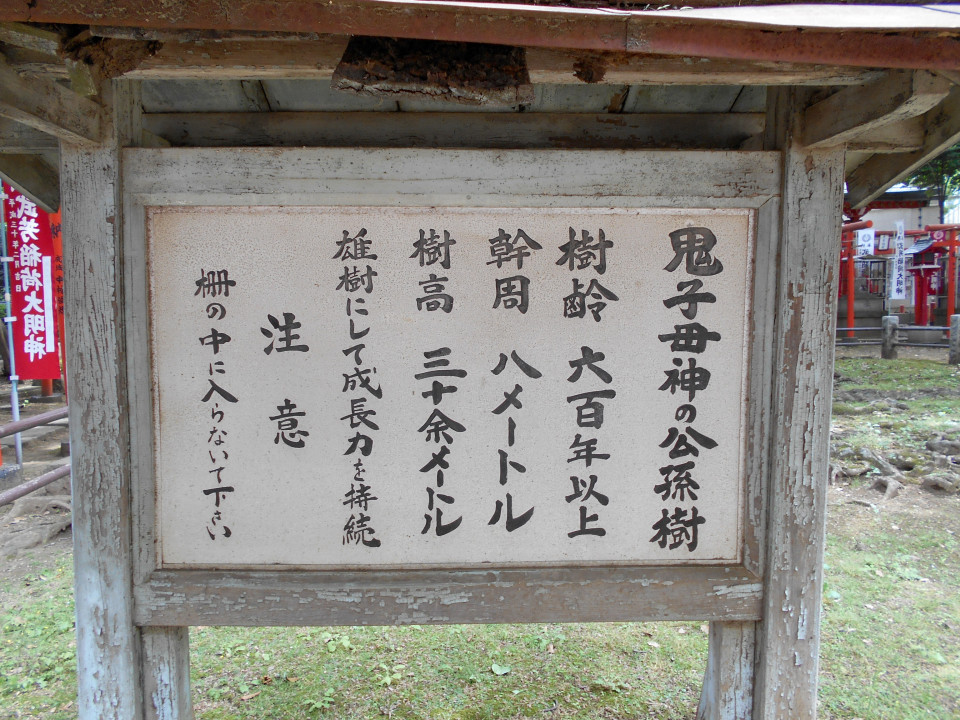 鬼子母神の公孫樹
樹齢 六百年以上
幹周 八メートル
樹高 三十余メートル
雄樹にして成長力を持続
注意
柵の中に入らないて下さい
武芳稲荷大明神
平成三十年二月吉日